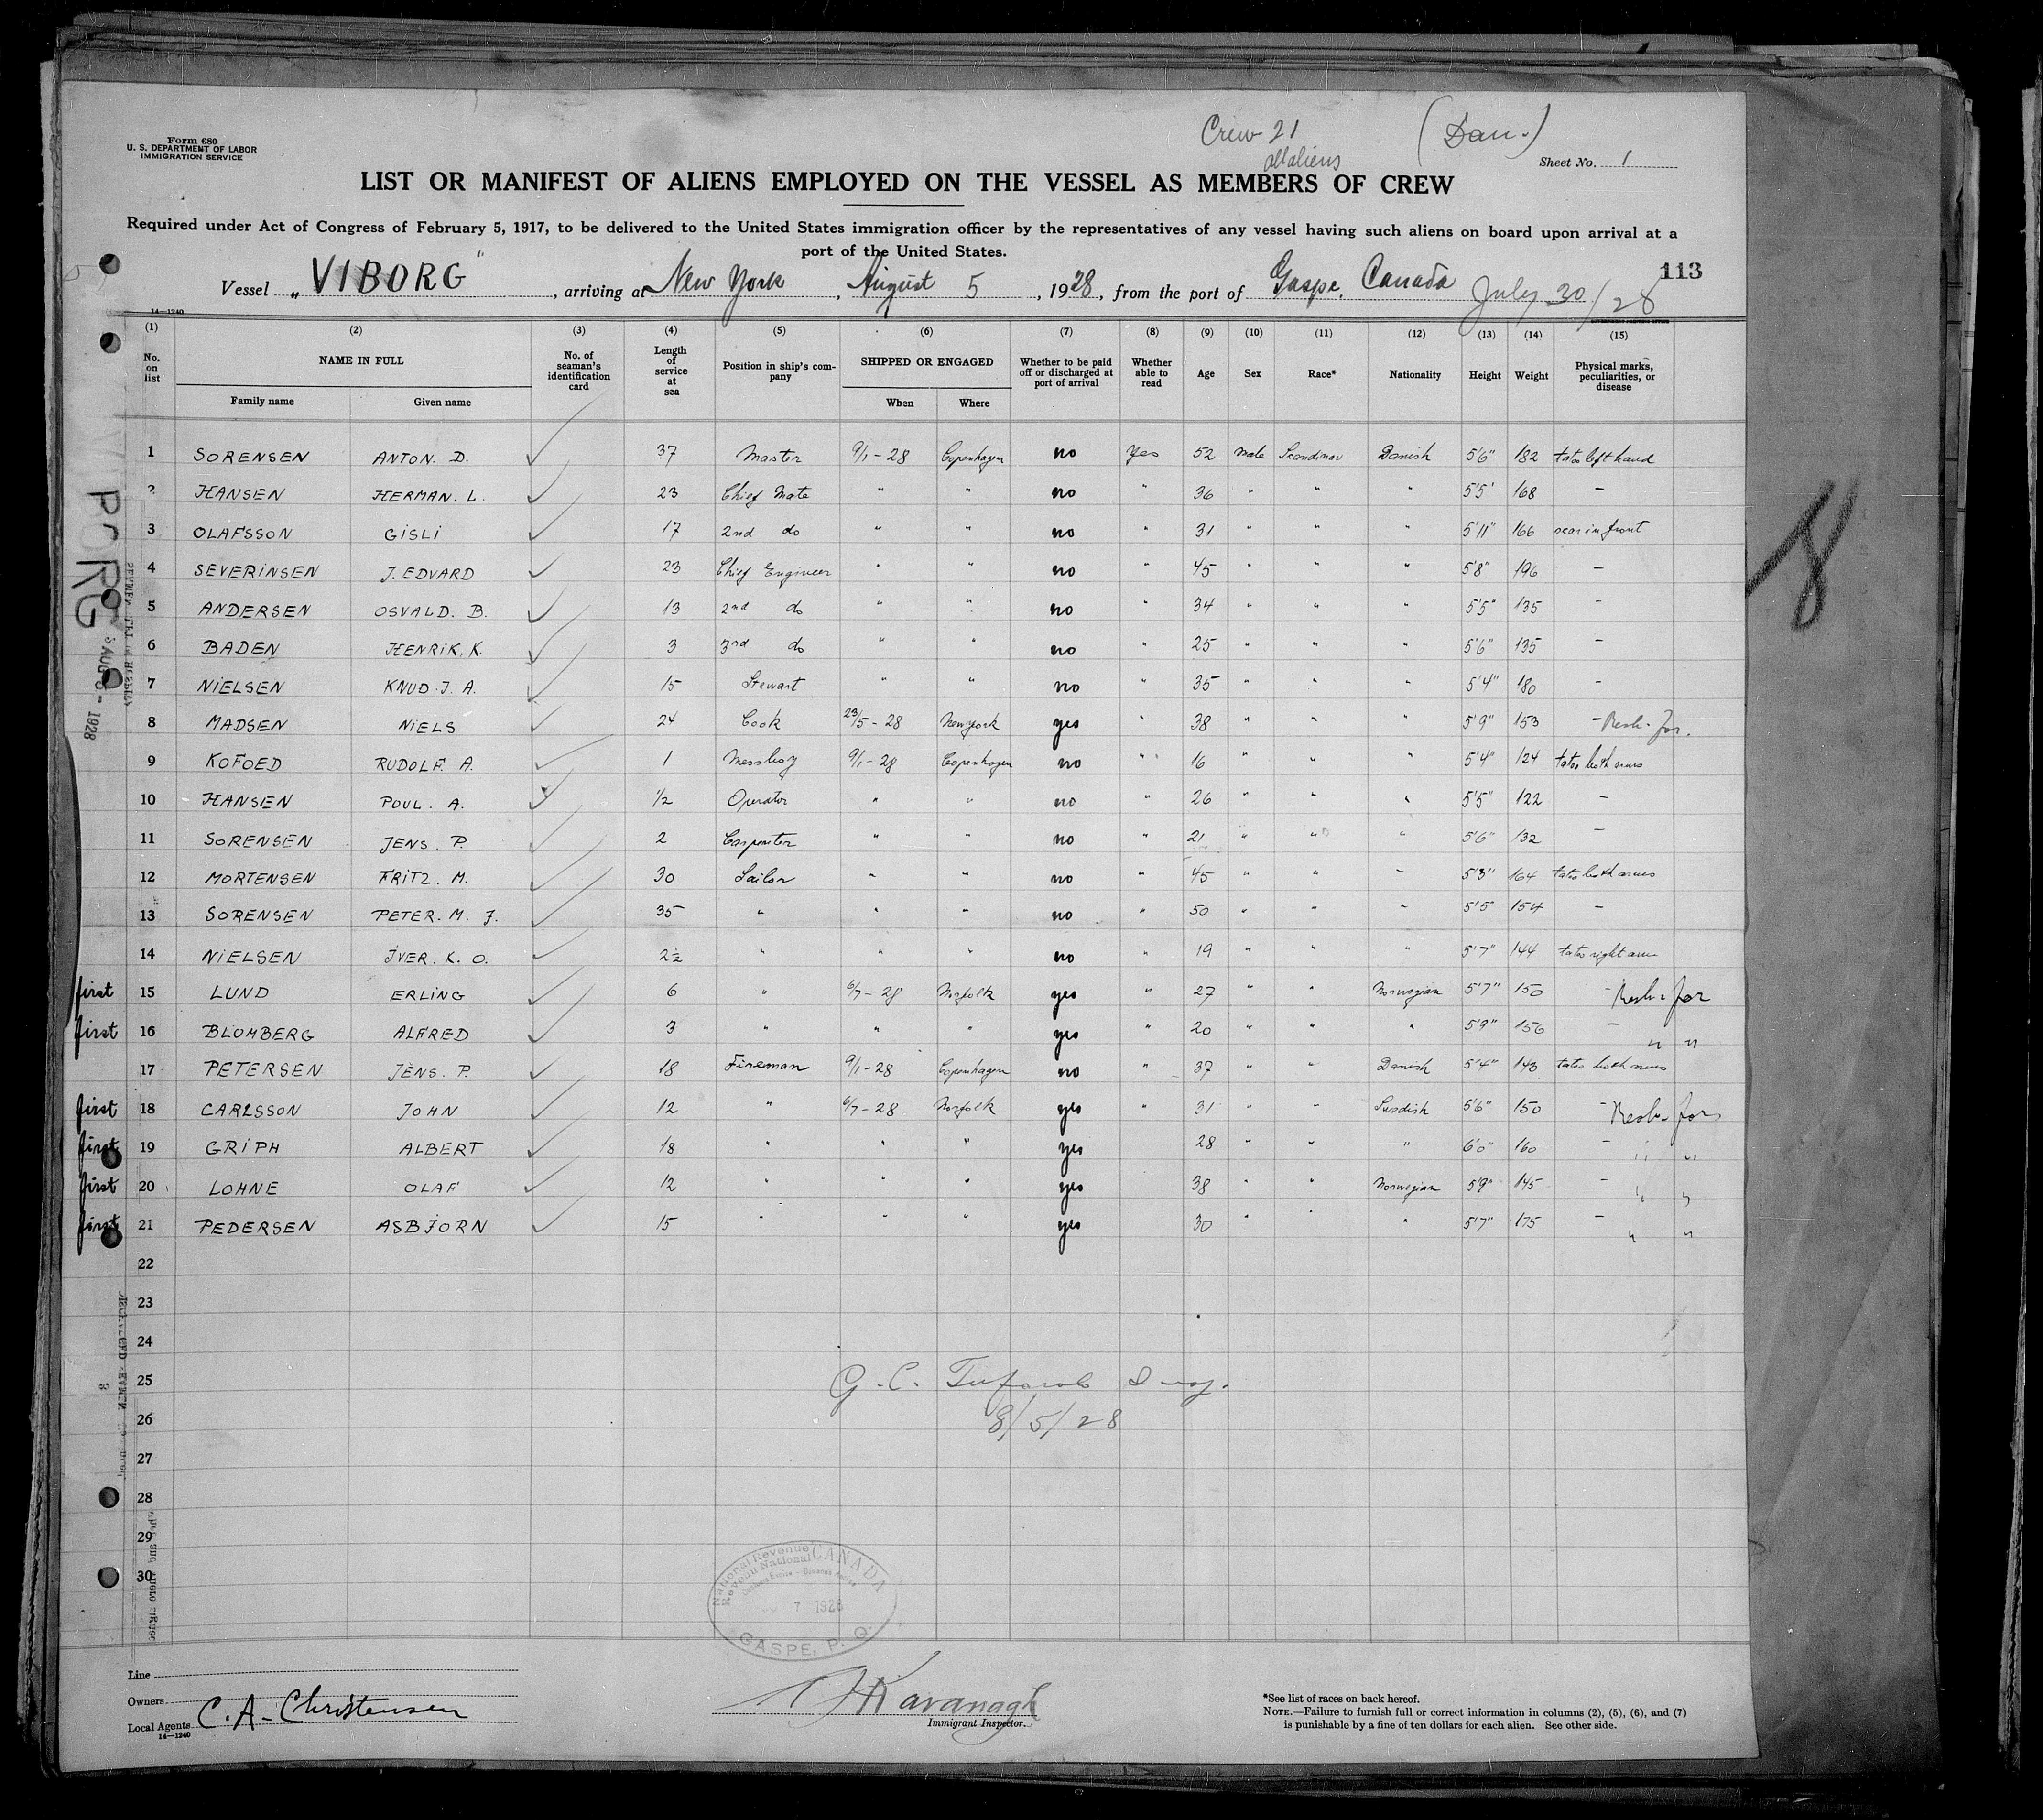 Form 680
U. S. DEPARTMENT OF LABOR
IMMIGRATION SERVICE
Crew 21
all aliens
(Dan.)
Sheet No. 1
LIST OR MANIFEST OF ALIENS EMPLOYED ON THE VESSEL AS MEMBERS OF CREW
Required under Act of Congress of February 5, 1917, to be delivered to the United States immigration officer by the representatives of any vessel having such aliens on board upon arrival at a
port of the United States.
113
Vessel "VIBORG", arriving at New York, August 5, 1928, from the port of Gaspe, Canada July 30/28
14—1240
(1) (2) (3) (4) (5) (6) (7) (8) (9) (10) (11) (12) (13) (14) (15)
No. on list NAME IN FULL No. of seaman's identification card Length of service at sea Position in ship's company SHIPPED OR ENGAGED Whether to be paid off or discharged at port of arrival Whether able to read Age Sex Race* Nationality Height Weight Physical marks, peculiarities, or disease
Family name Given name When Where
1 SORENSEN ANTON. D. 37 Master 9/1-28 Copenhagen no Yes 52 Male Scandinav Danish 5'6" 182 tatoo left hand
2 HANSEN HERMAN. L. 23 Chief Mate " " no " 36 " " " 5'5' 168 –
3 OLAFSSON GISLI 17 2nd do " " no " 31 " " " 5'11" 166 scar in front
4 SEVERINSEN J. EDVARD 23 Chief Engineer " " no " 45 " " " 5'8" 196 –
5 ANDERSEN OSVALD. B. 13 2nd do " " no " 34 " " " 5'5" 135 –
6 BADEN HENRIK. K. 3 3rd do " " no " 25 " " " 5'6" 135 –
7 NIELSEN KNUD. J. A. 15 Stewart " " no " 35 " " " 5'4" 180 –
8 MADSEN NIELS 24 Cook 23/5-28 Newyork yes " 38 " " " 5'9" 153 – Resh. for.
9 KOFOED RUDOLF. A. 1 Messboy 9/1-28 Copenhagen no " 16 " " " 5'4" 124 tatoo both arms
10 HANSEN POUL. A. 1/2 Operator " " no " 26 " " " 5'5" 122 –
11 SORENSEN JENS. P. 2 Carpenter " " no " 21 " " " 5'6" 132 –
12 MORTENSEN FRITZ. M. 30 Sailor " " no " 45 " " " 5'3" 164 tatoo both arms
13 SORENSEN PETER. M. J. 35 " " " no " 50 " " " 5'5 154 –
14 NIELSEN IVER. K. O. 2½ " " " no " 19 " " " 5'7" 144 tatoo right arm
first 15 LUND ERLING 6 " 6/7-28 Norfolk yes " 27 " " Norwegian 5'7" 150 – Resh. for
first 16 BLOMBERG ALFRED 3 " " " yes " 20 " " " 5'9" 156 – " "
17 PETERSEN JENS. P. 18 Fireman 9/1-28 Copenhagen no " 37 " " Danish 5'4" 143 tatoo both arms
first 18 CARLSSON JOHN 12 " 6/7-28 Norfolk yes " 31 " " Swedish 5'6" 150 – Resh. for
first 19 GRIPH ALBERT 18 " " " yes 28 " " " 6'0" 160 – " "
first 20 LOHNE OLAF 12 " " " yes 38 " " Norwegian 5'9" 145 – " "
first 21 PEDERSEN ASBJORN 15 " " " yes 30 " " " 5'7" 175 – " "
22
23
24
25
26
27
28
29
30
8/5/28
National Revenue CANADA
Revenu National
7 1928
GASPE, P. Q.
Line
Owners
Local Agents C. A. Christensen
14—1240
Kavanagh
Immigrant Inspector.
*See list of races on back hereof.
NOTE.—Failure to furnish full or correct information in columns (2), (5), (6), and (7)
is punishable by a fine of ten dollars for each alien. See other side.
8